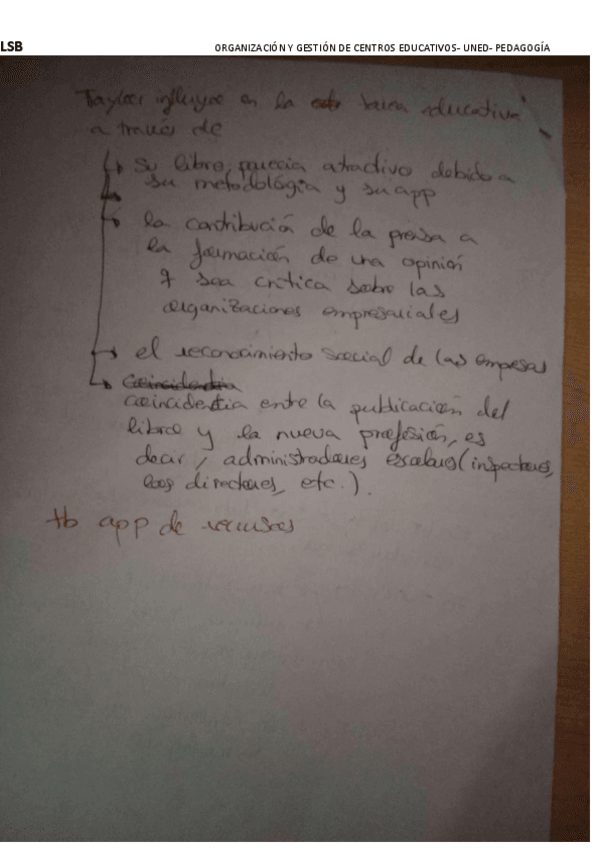 LSB
ORGANIZACIÓN Y GESTIÓN DE CENTROS EDUCATIVOS- UNED- PEDAGOGÍA
Taylor influye en la tarea educativa
a través de
su libro, parecia atractivo debido a
su metodológia y su app
la contribución de la prensa a
la formación de una opinión
sea critica sobre las
organizaciones empresariales
el reconocimiento social de las empesas
Coincidentia
coincidentia entre la publicación del
libro y la nueva profesión, es
decir, administradores escolares (inspectores,
los directores, etc.).
tb app de recursos